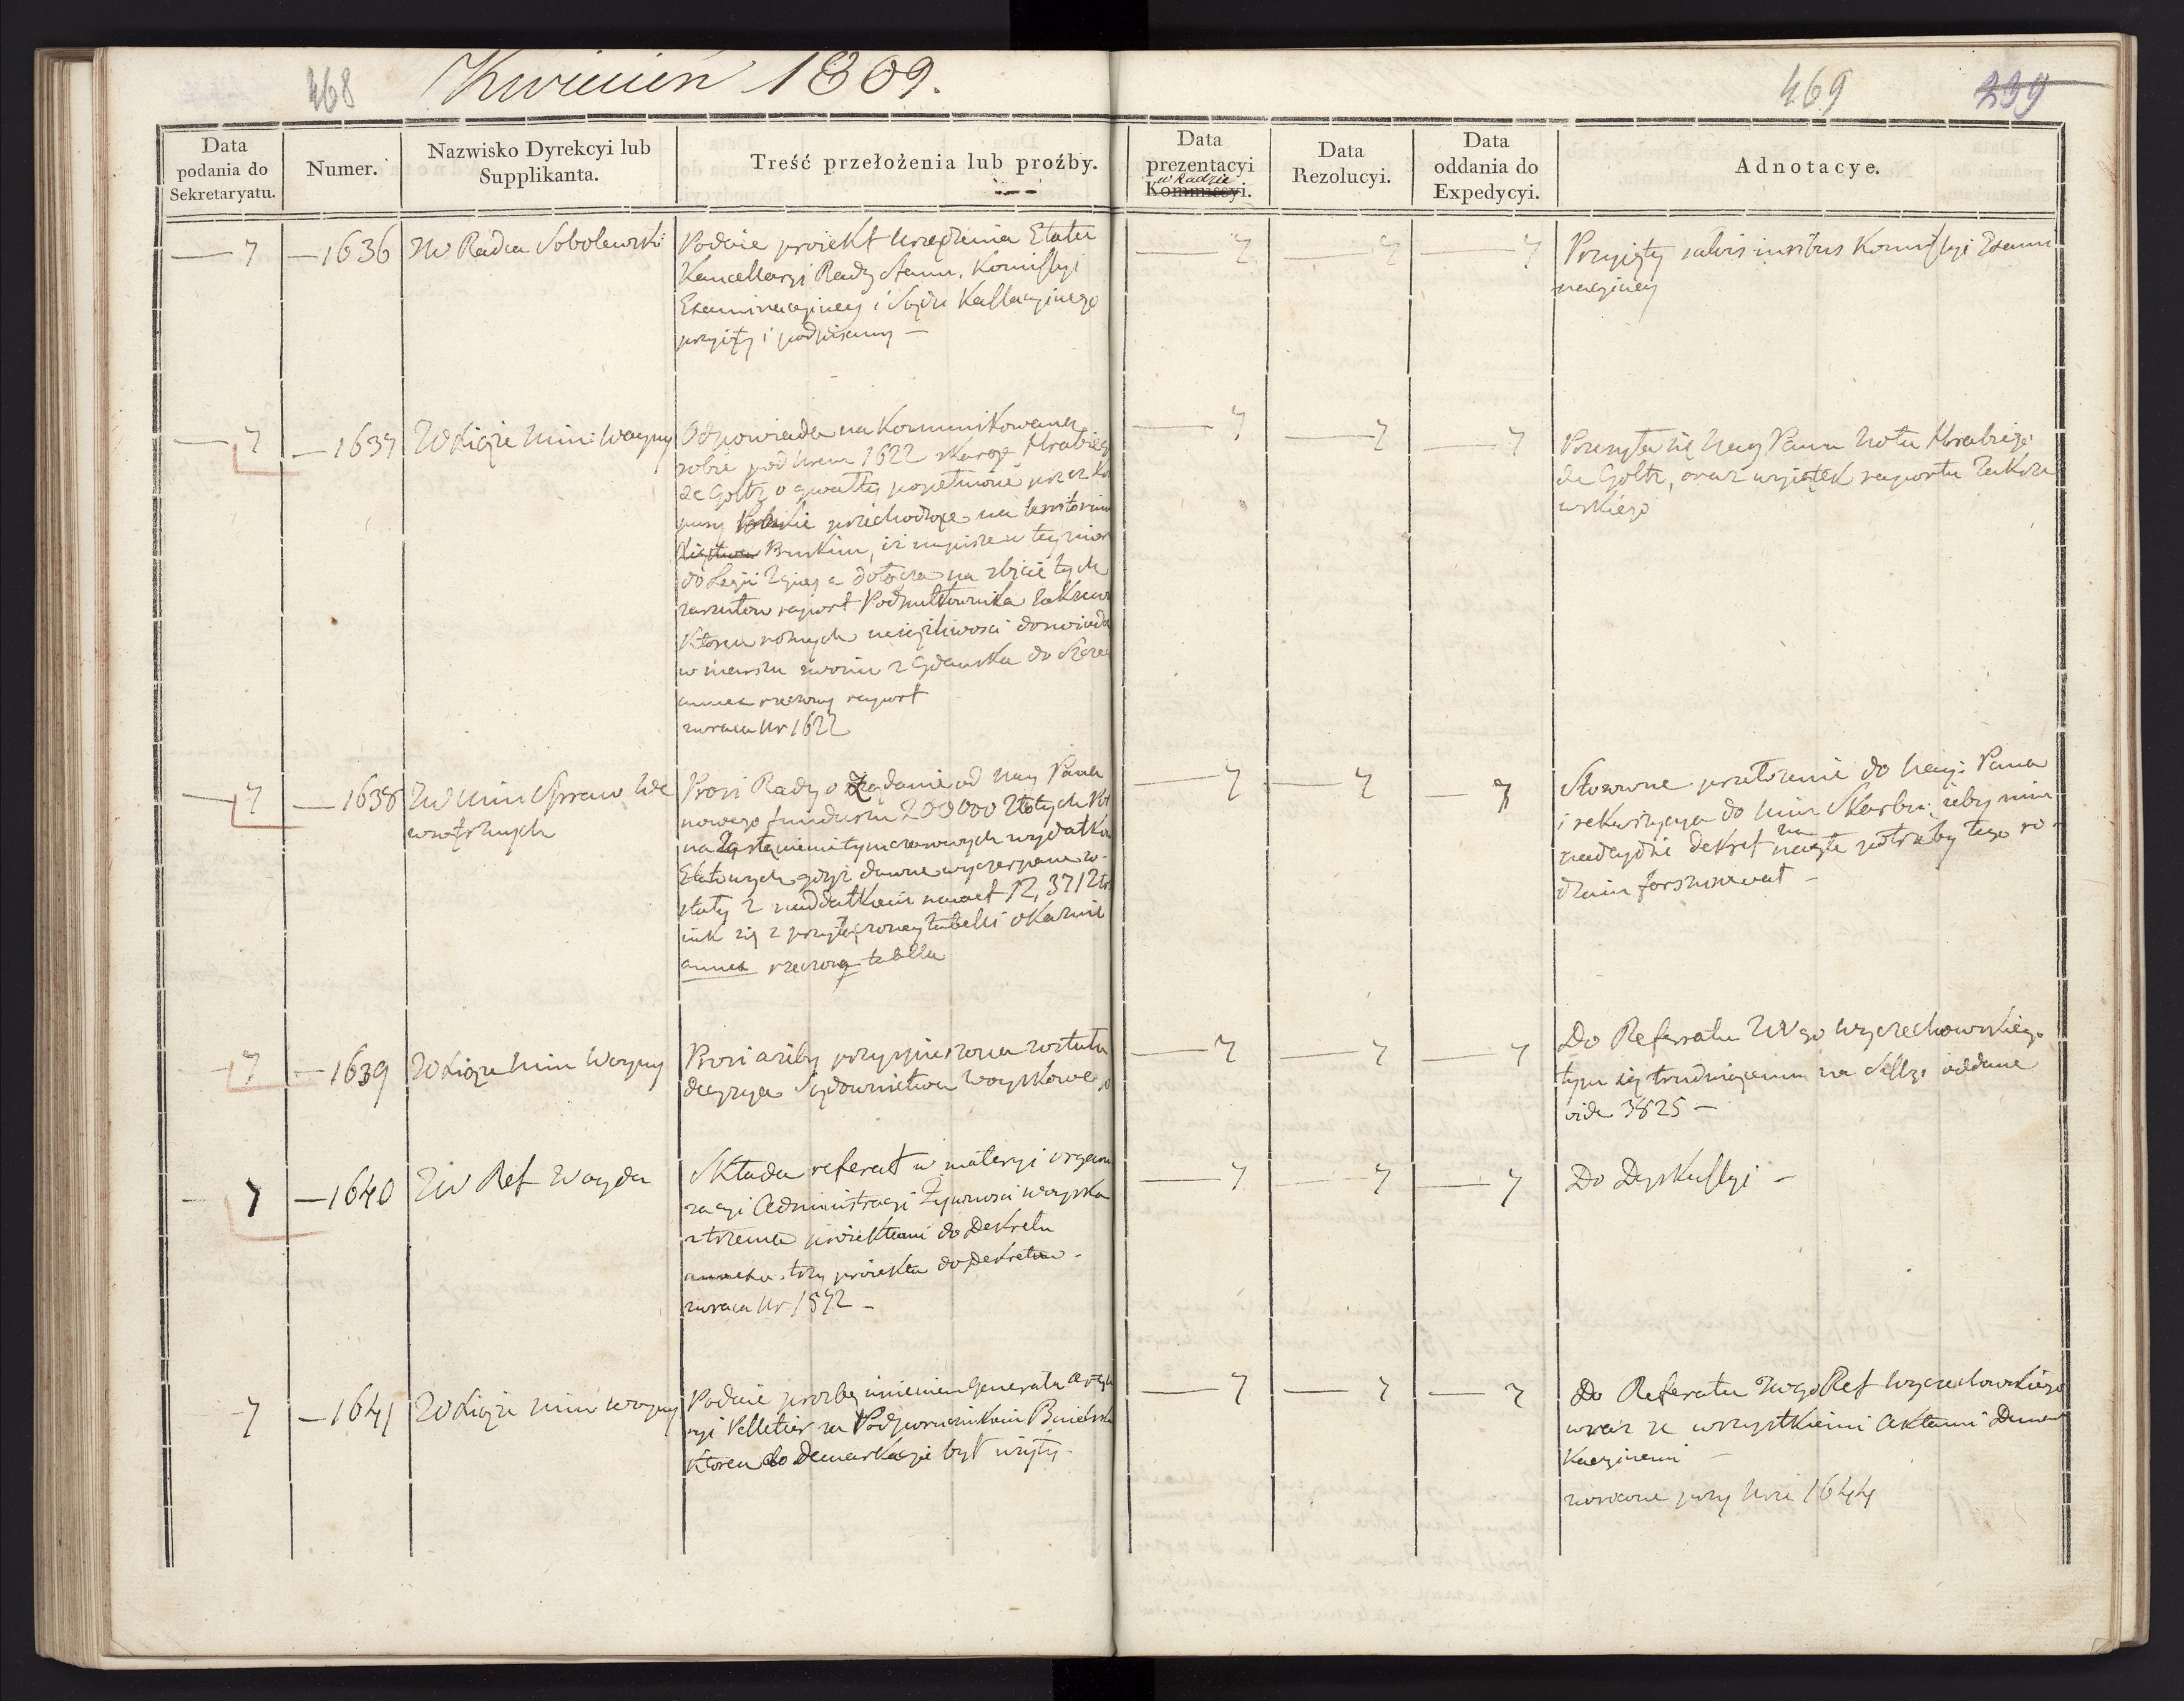 468
Kwiecień 1809.
469
239
Data podania do Sekretaryatu.
Numer.
Nazwisko Dyrekcyi lub Supplikanta.
Treść przełożenia lub proźby.
Data prezentacyi w Radzie Kommissyi.
Data Rezolucyi.
Data oddania do Expedycyi.
Adnotacye.
— 7
— 1636
JW Radca Sobolewski
Podaie proiekt urządzenia Etatu
Kancellaryi Rady Stanu, Komissyi
Examinacyiney i Sądu Kassacyinego
przyięty i podpisany —
— 7
— 7
— 7
Przyięty salvis iuribus Komissyi Exami
nacyiney
— 7
— 1637
JO Xiąże Min: Woyny
Odpowiada na Kommunikowaną
sobie pod Nrem 1622 skargę Hrabieg
de Goltz o gwałty popełnione przez Kor
pusy Polskie przechodzące na territorium
Xięstwa Pruskim, iż napisze w tey mier
do Legii a dołącza na zbicie tych
zarzutów raport Podpułkownika Zakrzew
Ktoren rożnych uciążliwosci doswiad
w marszu swoim z Gdanska do
annex rzeczony raport
zwraca Nr 1622
— 7
— 7
— 7
Przesyła się Nay Panu Nota Hrabiego
de Goltz, oraz wyiątek raportu Zakrze
wskiego
— 7
— 1638
JW Min Spraw We
wnętrznych
Prosi Rady o żądanie od Nay Pana
nowego funduszu 200000 Złotych Pol
na Zastąpienie tymczasowych wydatków
Etatowych gdyż dawne wyczerpane zo-
stały z naddatkiem nawet 12,3712
iak się z przyłączoney tabelli okaznie
annex rzeczona tabella
— 7
— 7
— 7
Stosowne przełożenie do Nay: Pana
i rekwizycya do Min Skarbu: żeby nim
nadeydzie dekret na nagłe potrzeby tego ro-
dzaiu forszusował —
— 7
— 1639
JO Xiąże Min Woyny
Prosi ażeby przyspieszona została
decyzya Sądownictwa Woyskowego
— 7
— 7
— 7
Do Referatu JWgo Wyczechowskiego
tym się trudniącemu na Sessyi oddane
vide 3825 —
— 7
— 1640
JW Ref Woyda
Składa referat w materyi organi
zacyi Administracyi Żywnosci woyska
z trzema proiektami do Dekretu
annexa. trzy proiekta do Dekretu -
zwraca Nr 1572 —
— 7
— 7
— 7
Do Dyskussyi —
— 7
— 1641
JO Xiąże Min Woyny
Podaie prozbę imieniem Generała Artyl
ryi Pelletier za Podporucznikiem
Ktoren do Demarkacyi był użyty -
— 7
— 7
— 7
Do Referatu JWgo Ref Wyczechowskiego
wraz ze wszystkiemi Aktami Demar
Kacyinemi —
zwrocone przy Nrze 1644